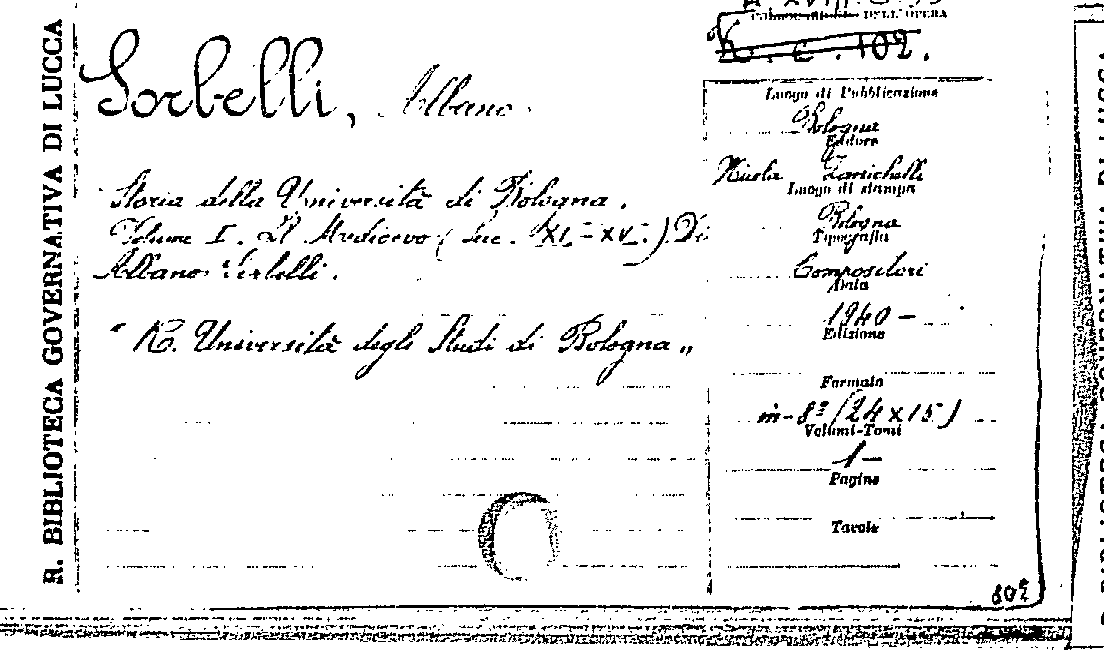 R. BIBLIOTECA GOVERNATIVA DI LUCCA
DELL'OPERA
K. C. 102.
Sorbelli, Albano.
Storia della Università di Bologna.
Volume I. Il Medioevo (Sec. XI-XV.) Di
Albano Sorbelli.
"R. Università degli Studi di Bologna"
Luogo di Pubblicazione
Bologna
Editore
Nicola Zanichelli
Luogo di stampa
Bologna
Tipografia
Compositori
Data
1940 -
Edizione
Formato
in-8º (24x15)
Volumi-Tomi
1 -
Pagine
Tavole